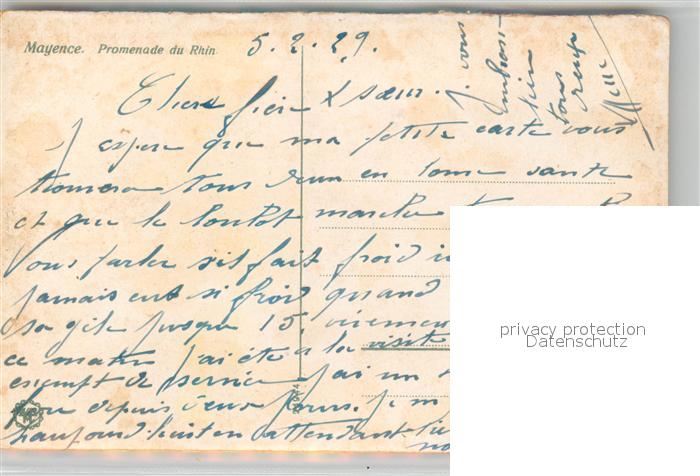 Mayence. Promenade du Rhin
5.2.29.
Chers frère & sœur.
J espere que ma petite carte vous
trouvera tous deux en bonne sante
et que le boulot marche
Vous parlez s'il fait froid i
jamais eut si froid quand
sa gele jusque 15,
ce matin j'ai été a la visite
exempt de service j'ai un
peu depuis deux jours. je m
aujourd'huit en attendant
je vous
embrasse
bien
tous
deux
privacy protection
Datenschutz